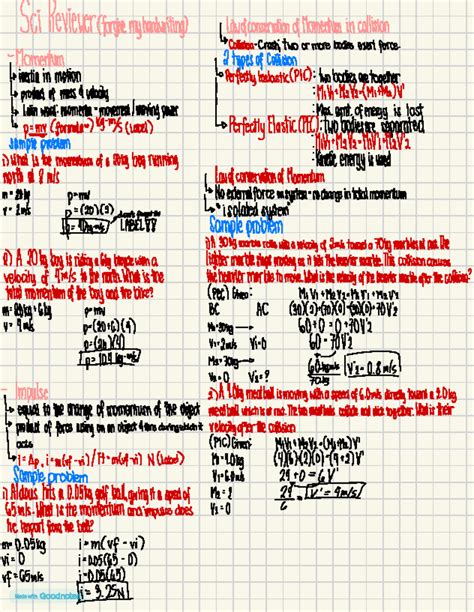 Sci Reviewer (forgive my handwriting)
- Momentum
inertia in motion
product of mass & velocity
Latin word: momentum - movement / moving power
p=mv (formula) kg·m/s (Label)
Sample problem
1) What is the momentum of a 20kg boy running
north at 2 m/s
m = 20kg p=mv
v = 2m/s p = (20)(2)
p = 40kg·m/s
LABEL!!
2) A 20 kg boy is riding a 6kg bicycle with a
velocity of 4m/s to the north. What is the
total momentum of the boy and the bike?
p=mv
v = 4m/s p=(20+6)(4)
p=(26)(4)
p = 104 kg·m/s
- Impulse
equal to the change of momentum of the object
product of force using on an object & time during which it
acts
N (Label)
Sample problem
1) Aldous hits a 0.05kg golf ball, giving it a speed of
65m/s. What is the momentum and impulse does
he impart from the ball?
m= 0.05kg i= m(vf - vi)
vi = 0 i=0.05(65-0)
vf = 65m/s i=0.05(65)
i = 3.25N
Made with Goodnotes
Law of conservation of Momentum in collision
Collision- Crash, Two or more bodies exert force.
2 types of Collision
Perfectly Inelastic (PIC): Two bodies are together
M1V1+M2V2=(M1+M2)V'
Max. amt. of energy is lost
Perfectly Elastic (PEC): Two bodies are separated
Kinetic energy is used
Law of conservation of Momentum
No external force on system - no change in total momentum
"isolated system"
Sample problem
1) A 30kg marble rolls with a velocity of 2m/s toward a 70kg marble at rest. The
lighter marble stops moving as it hits the heavier marble. This collision causes
the heavier marble to move. What is the velocity of the heavier marble after the collision?
(PEC) Given:
BC AC
60+0 = 0+70V'2
V1=2m/s V1=0 60 = 70V'2
M2=70kg
V2 = 0 V2 = ?
V'2 = 0.8 m/s
2) A 4.0kg meatball is moving with a speed of 6.0m/s directly toward a 2.0kg
meatball which is at rest. The two meatballs collide and stick together. What is their
velocity after the collision
(PIC) Given: M1V1+M2V2=(M1+M2)V'
M1= 4.0kg (4)(6)+(2)(0)=(4+2)V'
V1=6.0m/s 24+0=6V'
V'=4m/s
V2 = 0